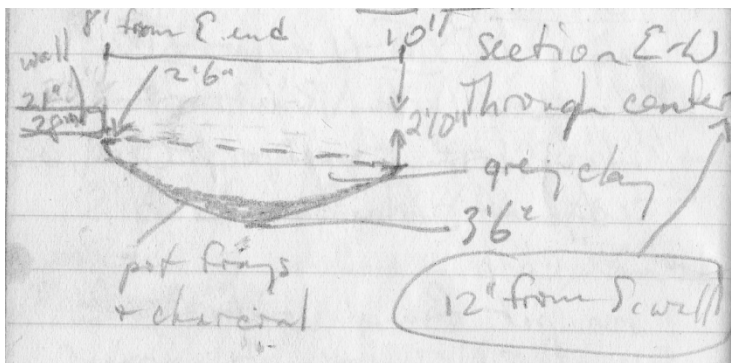 8' from E end
10'
section E-W
through center
wall
2'6"
21"
2'10"
grey clay
3'6"
pot frags
+ charcoal
12" from S. wall